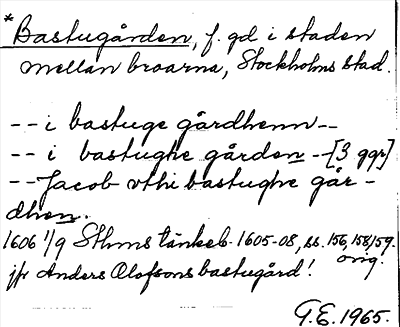 *Bastugården, f. gd i staden
mellan broarna, Stockholms stad.
-- i bastuge gårdhenn --
-- i bastughe gården --[3 ggr]
-- Jacob vthi bastughe går-
dhen.
1606 1/9 Sthms tänkeb. 1605-08, ss. 156, 158, 159.
orig.
jfr Anders Olofsons bastugård!
G.E. 1965.